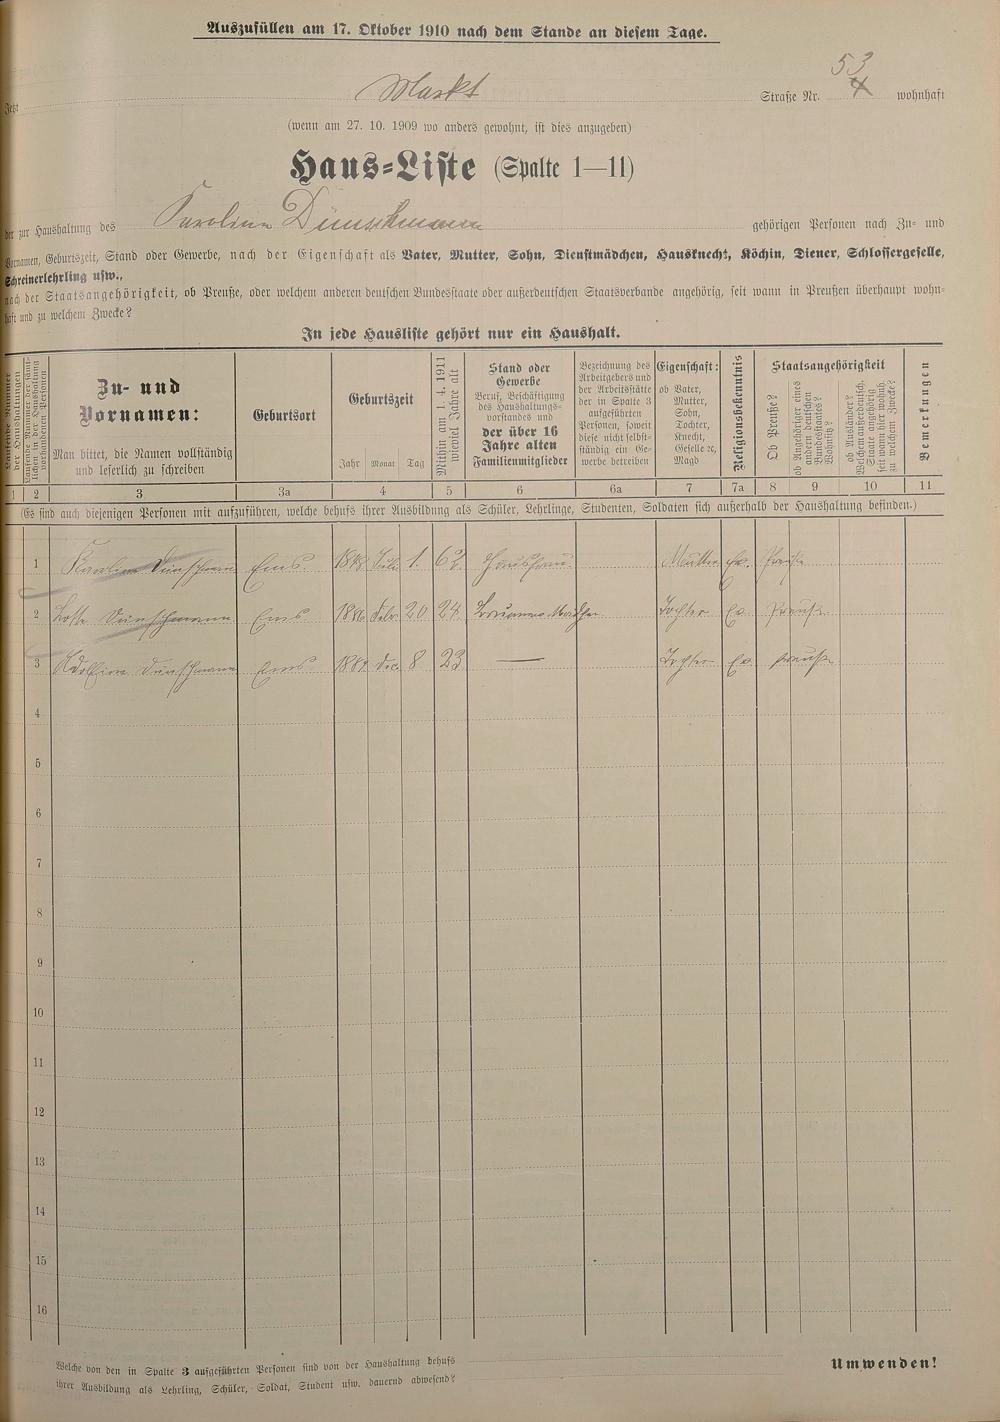 Auszufüllen am 17. Oktober 1910 nach dem Stande an diesem Tage.
53
Jetzt Markt Straße Nr. 4 wohnhaft
(wenn am 27. 10. 1909 wo anders gewohnt, ist dies anzugeben)
Haus-Liste (Spalte 1—11)
der zur Haushaltung des Karoline Dünschmann gehörigen Personen nach Zu- und
Vornamen, Geburtszeit, Stand oder Gewerbe, nach der Eigenschaft als Vater, Mutter, Sohn, Dienstmädchen, Hausknecht, Köchin, Diener, Schlossergeselle,
Schreinerlehrling usw.,
nach der Staatsangehörigkeit, ob Preuße, oder welchem anderen deutschen Bundesstaate oder außerdeutschen Staatsverbande angehörig, seit wann in Preußen überhaupt wohn-
haft und zu welchem Zwecke?
In jede Hausliste gehört nur ein Haushalt.
Laufende Nummer der Haushaltungen
Laufende Nummer der sämt-
lichen in der Haushaltung
vorhandenen Personen
Zu- und
Vornamen:
Man bittet, die Namen vollständig
und leserlich zu schreiben
Geburtsort
Geburtszeit
Jahr Monat Tag
Mithin am 1. 4. 1911
wieviel Jahre alt
Stand oder
Gewerbe
Beruf, Beschäftigung
des Haushaltungs-
vorstandes und
der über 16
Jahre alten
Familienmitglieder
Bezeichnung des
Arbeitgebers und
der Arbeitsstätte
der in Spalte 3
aufgeführten
Personen, soweit
diese nicht selbst-
ständig ein Ge-
werbe betreiben
Eigenschaft:
ob Vater,
Mutter,
Sohn,
Tochter,
Knecht,
Geselle ꝛc,
Magd
Religionsbekenntnis
Staatsangehörigkeit
Ob Preuße?
ob Angehöriger eines
andern deutschen
Bundesstaates?
Wohnsitz?
ob Ausländer?
Welchem außerdeutsch.
Staate angehörig
seit wann hier wohnh.
zu welchem Zwecke?
Bemerkungen
1 2 3 3a 4 5 6 6a 7 7a 8 9 10 11
(Es sind auch diejenigen Personen mit aufzuführen, welche behufs ihrer Ausbildung als Schüler, Lehrlinge, Studenten, Soldaten sich außerhalb der Haushaltung befinden.)
1 Karoline Dünschmann Ems. 1848 Juli 1. 62. Hausfrau. Mutter Ev. Preuße
2 Dünschmann Ems 1886 Febr. 20 24 Tochter Ev. Preuße
3 Adolfine Dünschmann Ems. 1887 Dec. 8 23 — Tochter Ev. Preuße
4
5
6
7
8
9
10
11
12
13
14
15
16
Welche von den in Spalte 3 aufgeführten Personen sind von der Haushaltung behufs
ihrer Ausbildung als Lehrling, Schüler, Soldat, Student usw. dauernd abwesend?
Umwenden!